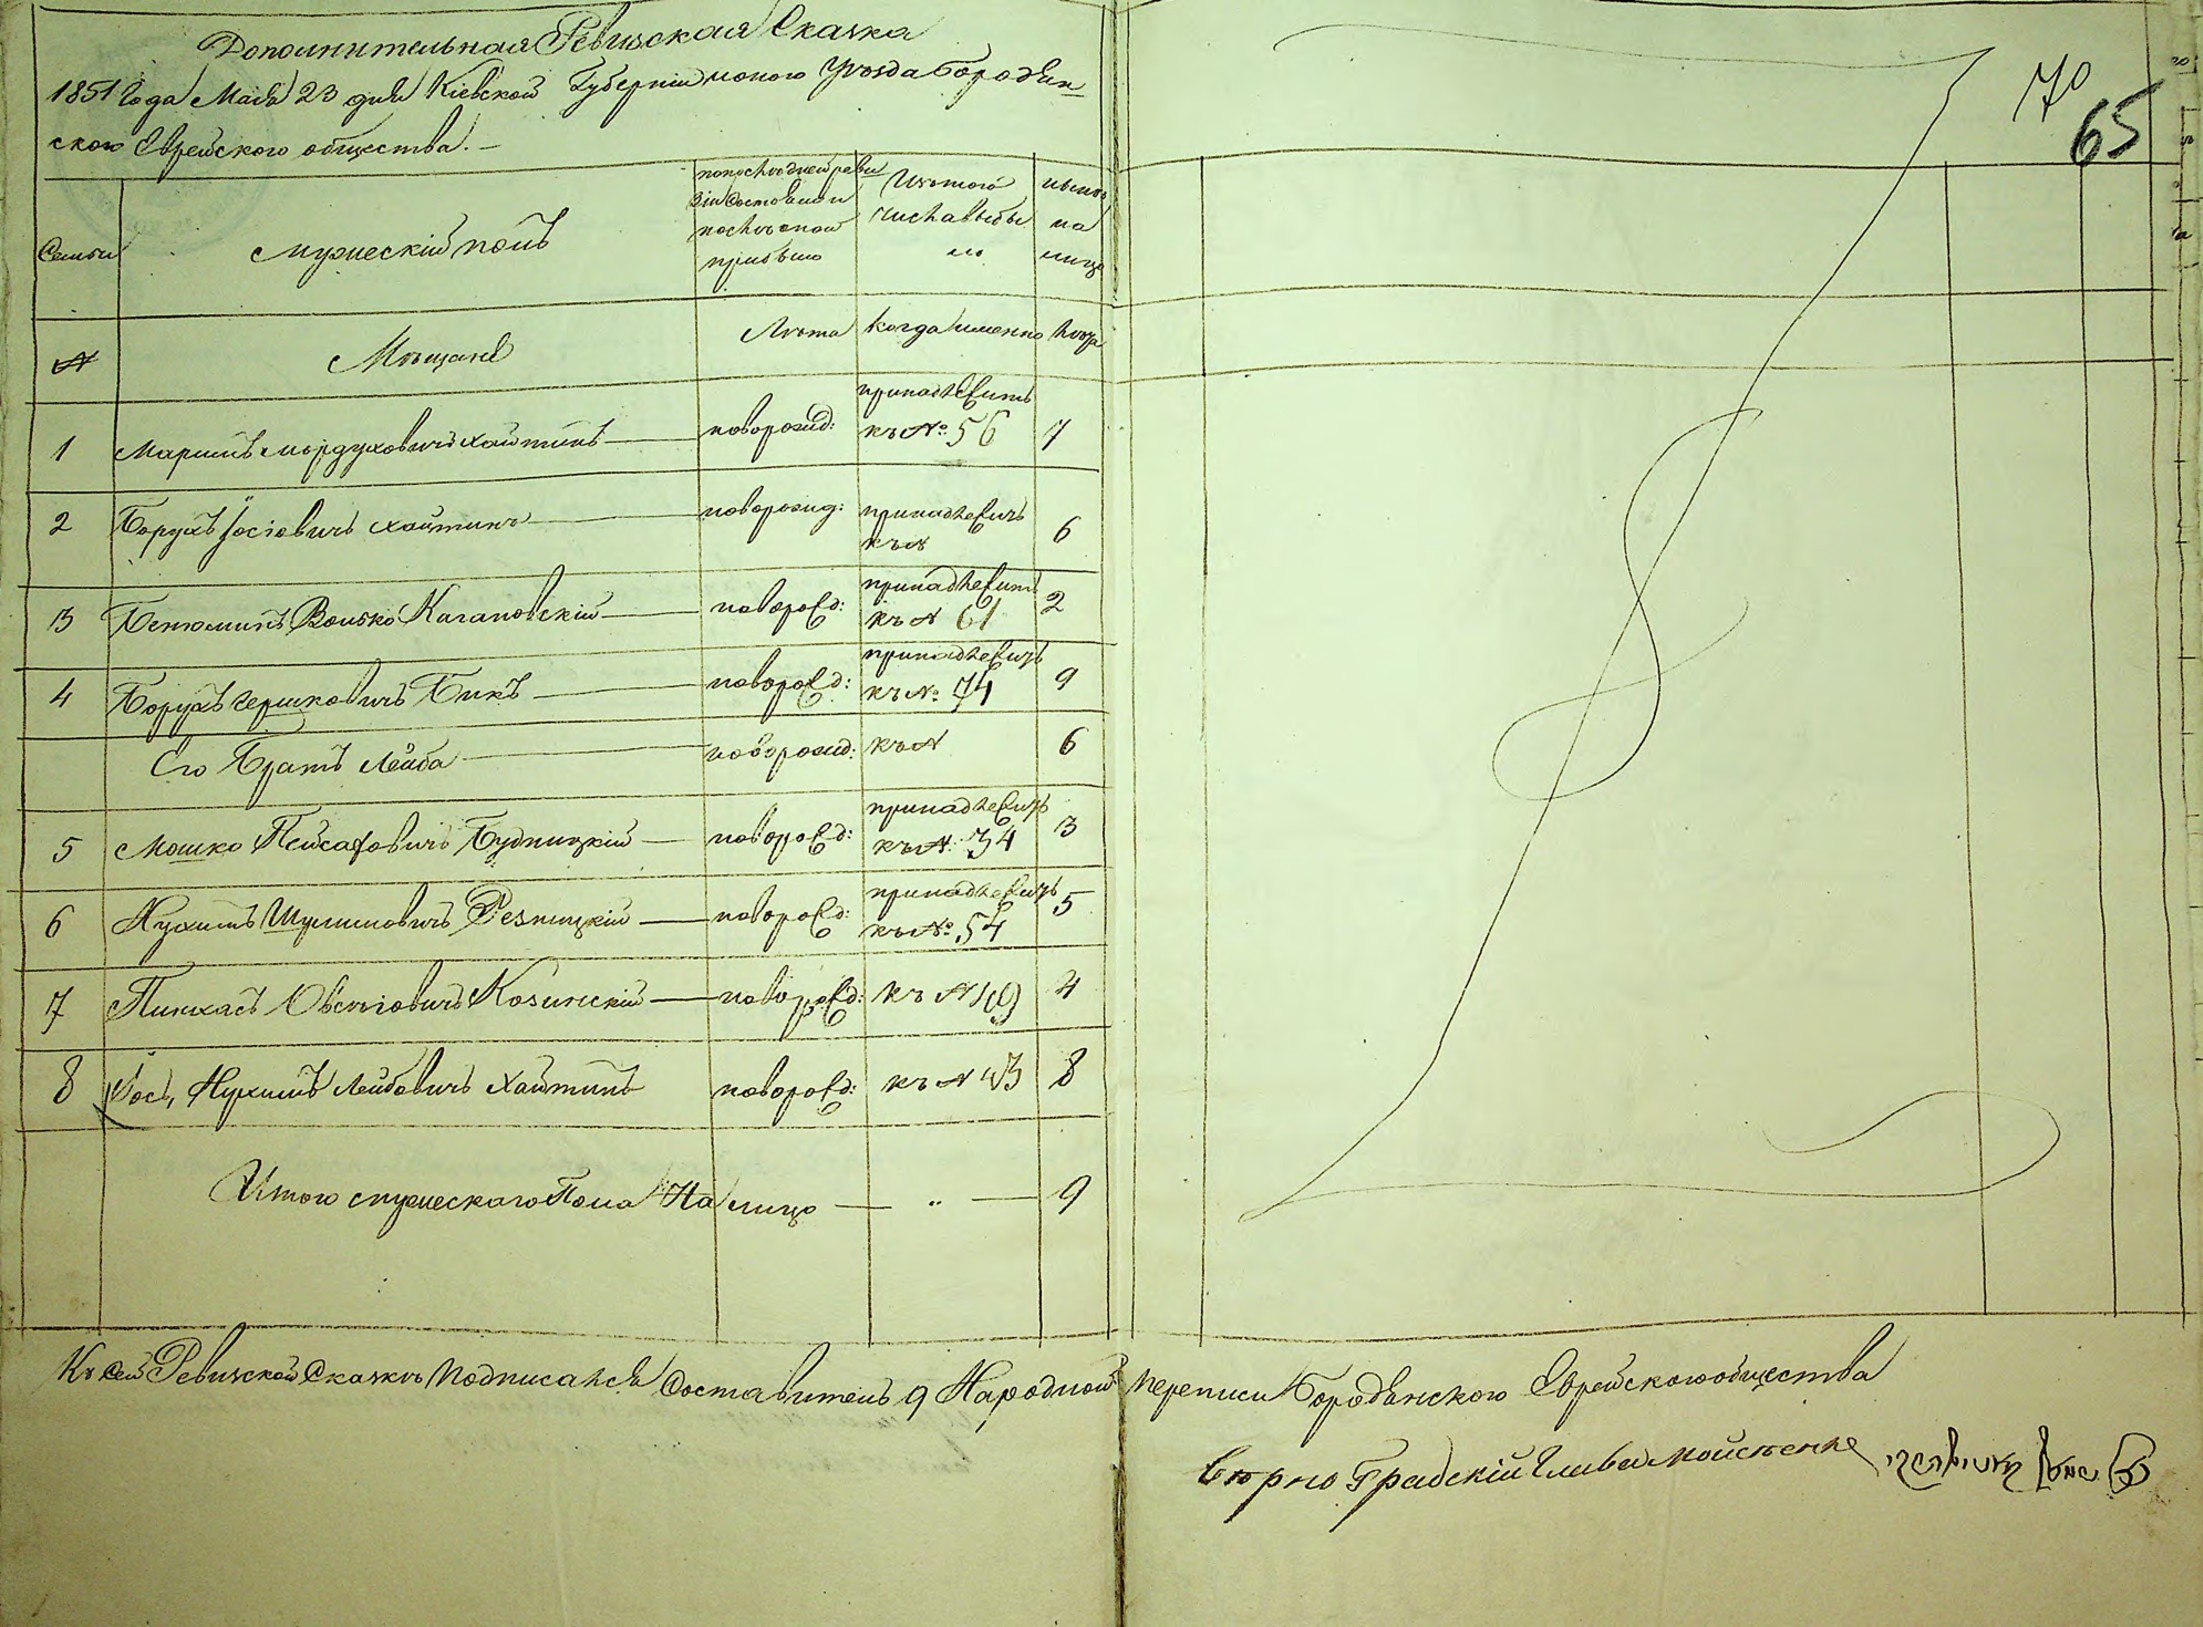 Дополнительная Ревизская Сказка
1851 Года Маія 23 дня Кіевской Губерніи Уѣзда Бородян
ского Еврейского общества. —
70
65
Семьи
Мужескій полъ
по послѣдней реви
зіи состояло и
послѣ оной
прибыло
Изъ того
числа выбы
ло
нынѣ
на
лицо
№
Мѣщане
Лѣта
когда именно
Лѣта
1 Мордуховичъ Хайтинъ — новорожд: принадлежитъ къ № 56 7
2 Борухъ Іосіовичъ Хайтинъ — новорожд: принадлежитъ къ № 6
3 Бенюминъ Волько Кагановскій — новорожд: принадлежитъ къ № 61 2
4 Борухъ Гершковичъ Бикъ — новорожд: принадлежитъ къ № 74 9
Его Братъ Лейба — новорожд: къ № 6
5 Мошко Пейсаховичъ Будницкій — новорожд: принадлежитъ къ № 34 3
6 Нухимъ Шулимовичъ Резницкій — новорожд: принадлежитъ къ № 54 5
7 Пинхасъ Овсѣіовичъ Козинскій — новорожд: къ № 49 4
8 Іось, Нухимъ Лейбовичъ Хайтинъ новорожд: къ № 43 8
Итого мужескаго Пола На лицо — „ — 9
Къ сей Ревизской Сказкѣ Подписался Составитель 9 Народной переписи Бородянского Еврейского общества
Вѣрно Градскій Глава